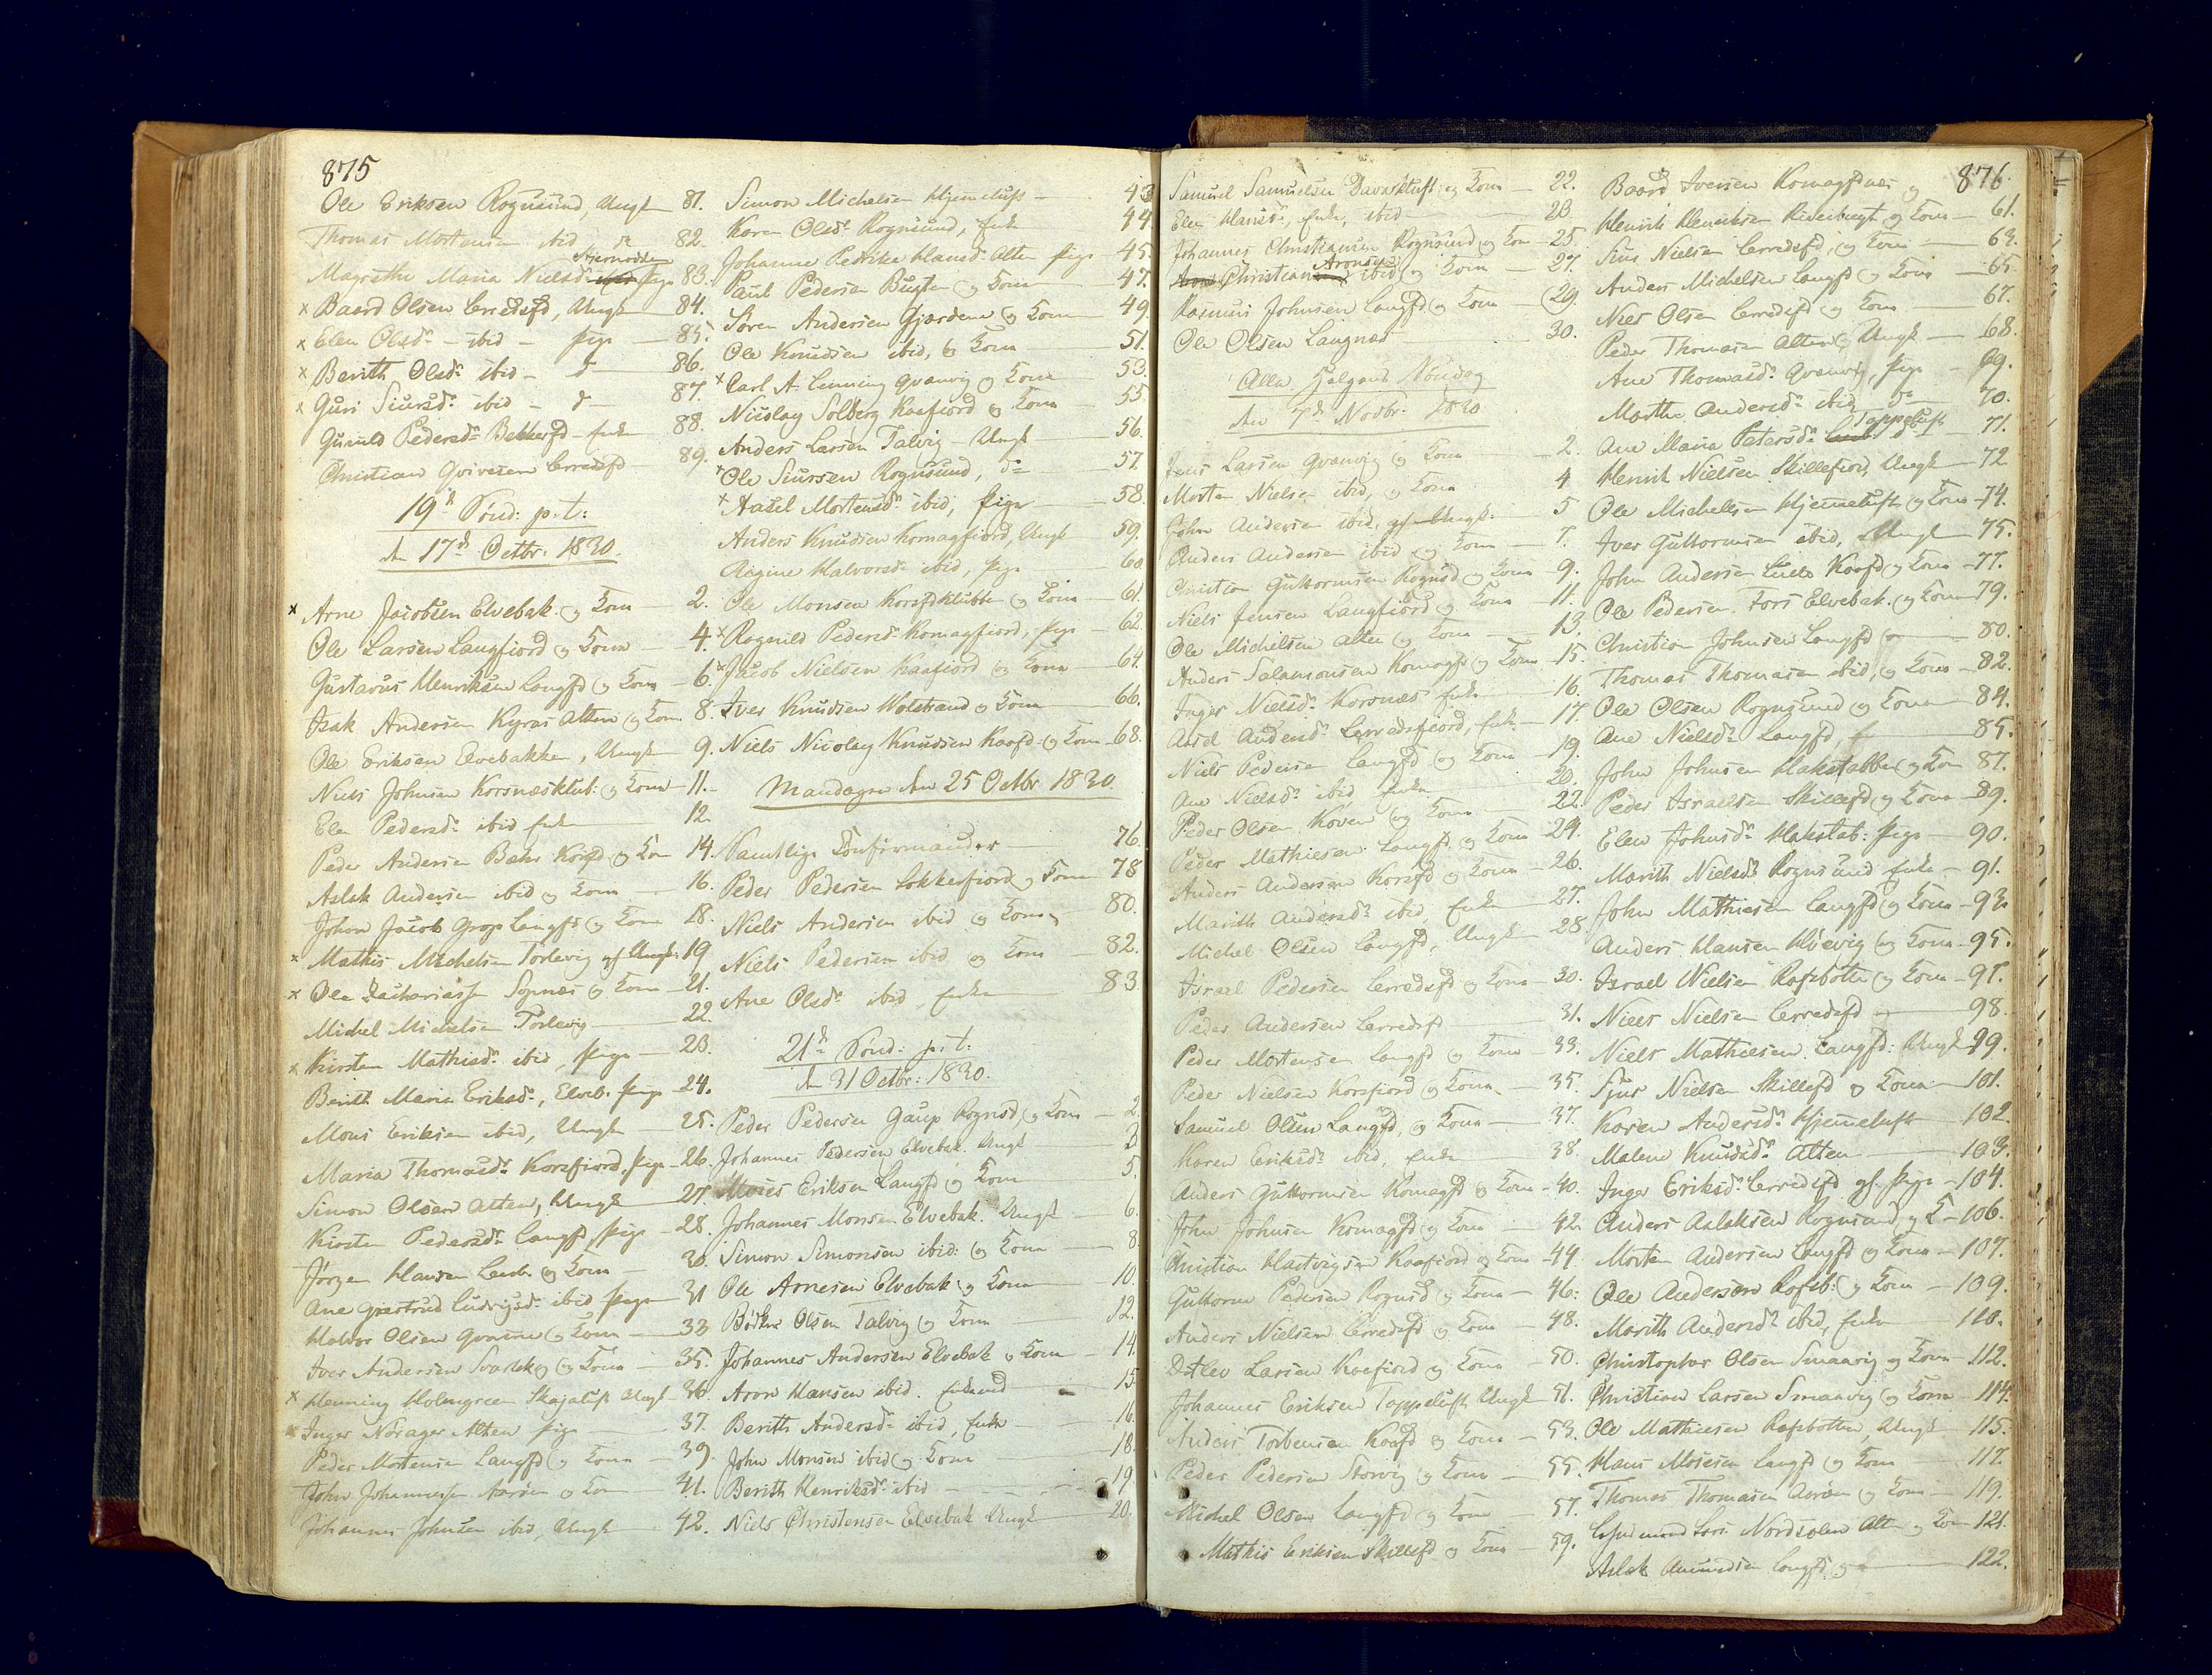 875
Ole Eriksen Rognsund, Ungk 81.
Thomas Mortensen ibid d° 82.
Stjernodden
Magrethe Maria Nielsdr pige 83.
x Baard Olsen Lerredsfd, Ungk 84.
x Elen Olsdr - ibid - pige 85.
x Berith Olsdr ibid - d° 86.
x Guri Siursdr ibid - d° 87.
Gunild Pedersdr Bekkerfd - enke 88.
Christian Qvivesen Lerredsfd 89.
19de Sönd: p. t:
d. 17de Octbr: 1830.
x Arne Jacobsen Elvebak. og Kona 2.
Ole Larsen Langfiord og Kona 4.
Gustavus Henriksen Langfd og Kona 6.
Isak Andersen Kyræs Alten og Kona 8.
Ole Eriksen Elvebakken, Ungk 9.
Niels Johnsen Korsnæsklub: og Kona 11.
Elen Pedersdr ibid enke 12.
Peder Andersen Bahr Korsfd og Kon 14.
Aslak Andersen ibid og Kona 16.
Johan Jacob Grop Langfd og Kona 18.
x Mathis Michelsen Torlevig gl Ungk: 19
x Ole Zachariass. Sopnæs og Kona 21.
Michel Michelsen Torlevig 22
x Kirsten Mathisdr ibid, pige 23.
Berith Maria Eriksdr, Elveb. pige 24.
Mons Eriksen ibid, Ungk 25.
Maria Thomasdr Korsfiord, pige 26.
Simon Olsen Alten, Ungk 27.
Kirsten Pedersdr Langfd, pige 28.
Jörgen Hansen Lerb. og Kona 30.
Ane Giertrud Ludvigsdr ibid, pige 31
Haldor Olsen Qvænv og Kona 33
Iver Andersen Svartsk og Kona 35.
x Henning Holmgreen Skajaluft Ungk 36.
x Inger Norager Alten pige 37.
Peder Mortensen Langfd og Kona 39.
John Johannessen Aaröen og Kon 41.
Johannes Johnsen ibid, Ungk 42.
Simon Michelsen Hjemeluft 43
Karen Olsdr Rognsund, enke 44.
Johanne Pedrike Hansdr Alten pige 45.
Paul Pedersen Bugten og Kona 47.
Sören Andersen Gjærdene og Kona 49.
Ole Knudsen ibid, og Kona 51.
x Carl A. Lenning Qvænvig og Kona 53.
Nicolay Solberg Kaafiord og Kona 55.
Anders Larsen Talvig - Ungk 56.
x Ole Siursen Rognsund, d° 57.
x Aasel Mortensdr ibid, pige 58.
Anders Knudsen Komagfiord, Ungk 59.
Regine Halvorsdr ibid, pige 60
Ole Monsen Korsfdklubbe og Kona 61.
x Rognild Pedersdr Komagfiord, pige 62.
x Jacob Nielsen Kaafiord og Kona 64.
Iver Knudsen Wolstrand og Kona 66.
Niels Nicolay Knudsen Kaafd og Kona 68.
Mandagen den 25 Octbr 1830
Samtlige Confirmander 76.
Peder Pedersen Lokkerfiord og Kona 78
Niels Andersen ibid og Kona 80.
Niels Pedersen ibid og Kona 82.
Ane Olsdr ibid enke 83.
21de Sönd: p. t:
d. 31 Octbr: 1830.
Peder Pedersen Gaup Rognsd, og Kona 2.
Johannes Pedersen Elvebak. Ungk 3
Moses Eriksen Langfd og Kona 5.
Johannes Monsen Elvebak. Ungk 6.
Simon Simonsen ibid: og Kona 8.
Ole Arnesen Elvebak: og Kona 10.
Bödker Olsen Talvig og Kona 12.
Johannes Andersen Elvebak og Kona 14.
Aron Hansen ibid. enkemd 15.
Berith Andersdr ibid, enke 16.
John Monsen ibid og Kona 18.
Berith Henriksdr ibid 19.
Niels Christensen Elvebak Ungk 20.
876.
Samuel Samuelsen Davarsluft og Kona 22.
Elen Hansdr, enke, ibid 23.
Johannes Christiansen Rognsund og Kon 25.
Christian Aronsen ibid og Kona 27.
Rasmus Johnsen Langfd og Kona 29.
Ole Olsen Langnæs 30.
Alle Helgens Söndag
den 7de Novbr. 1830.
Jens Larsen Qvænvig og Kona 2.
Morten Nielsen ibid, og Kona 4
John Andersen ibid. gl Ungk. 5
Anders Andersen ibid og Kona 7.
Christian Guttormsen Rognsd og Kona 9.
Niels Jensen Langfiord og Kona 11.
Ole Michelsen Alten og Kona 13.
Anders Salamonsen Komagfd og Kona 15.
Inger Nielsdr Korsnæs enke 16.
Aasel Andersdr Lerredsfiord, enke 17.
Niels Pedersen Langfd og Kona 19.
Ane Nielsdr ibid enke 20.
Peder Olsen Koven og Kona 22.
Peder Mathiesen Langfd og Kona 24.
Anders Andersen Korsfd og Kona 26.
Marith Andersdr ibid, enke 27.
Michel Olsen Langfd, Ungk 28
Israel Pedersen Lerredsfd og Kona 30.
Peder Andersen Lerredsf 31.
Peder Mortensen Langfd og Kona 33.
Peder Nielsen Korsfiord og Kona 35.
Samuel Olsen Langfd, og Kona 37.
Karen Eriksdr ibid, enke 38.
Anders Guttormsen Komagfd og Kona 40.
John Johnsen Komagfd og Kona 42.
Christian Hartvigsen Kaafiord og Kona 44.
Guttorm Pedersen Rognsd og Kona 46.
Anders Nielsen Lerredsfd og Kona 48.
Detlev Larsen Kaafiord og Kona 50.
Johannes Eriksen Toppeluft Ungk 51.
Anders Torbensen Kaafd og Kona 53.
Peder Pedersen Storvig og Kona 55.
Michel Olsen Langfd og Kona 57.
Mathis Eriksen Skillefd og Kona 59.
Baard Iversen Komagfdnæs og
Henrik Henriksen Reverbugt og Kona 61.
Sius Nielsen Lerredsfd, og Kona 63.
Anders Michelsen Langfd og Kona 65.
Niels Olsen Lerredsfd og Kona 67.
Peder Thomasen Alten, Ungk 68.
Ane Thomasdr Qvænvig, pige 69.
Marthe Andersdr ibid, d° 70.
Toppeluft
Ane Maria Petersdr d° 71.
Henrik Nielsen Skillefiord, Ungk 72
Ole Michelsen Hjemeluft og Kona 74.
Iver Guttormsen ibid, Ungk 75.
John Andersen Kaafd og Kona 77.
Ole Pedersen Fors Elvebak. og Kona 79.
Christian Johnsen Langfd 80.
Thomas Thomasen ibid, og Kona 82.
Ole Olsen Rognsund og Kona 84.
Ane Nielsdr Langfd, 85.
John Johnsen Hakstabben og Kon 87.
Peder Israelsen Skillefd og Kona 89.
Elen Johnsdr Hakstab: pige 90.
Marith Nielsdr Rognsund enke 91.
John Mathiesen Langfd og Kona 93.
Anders Hansen Höevig og Kona 95.
Israel Nielsen Rafsbotten og Kona 97.
Niels Nielsen Lerredsfd 98.
Niels Mathiesen Langfd: Ungk 99.
Sjur Nielsen Skillefd og Kona 101.
Karen Andersdr Hjemeluft 102.
Malene Knudsdr Alten 103.
Inger Eriksdr Lerredsfd gl. pige 104.
Anders Aslaksen Rognsund, og K 106.
Morten Andersen Langfd og Kona 107.
Ole Andersen Rafsb: og Kona 109.
Marith Andersdr ibid, enke 110.
Christopher Olsen Smaavig og Kona 112.
Christian Larsen Smaavig og Kona 114.
Ole Mathiesen Rafsbotten, Ungk 115.
Hans Mosesen Langfd og Kona 117.
Thomas Thomasen Aaröen og Kona 119.
Lars Nordsolen Alten og Kon 121.
Aslak Amundsen Langfd 122.